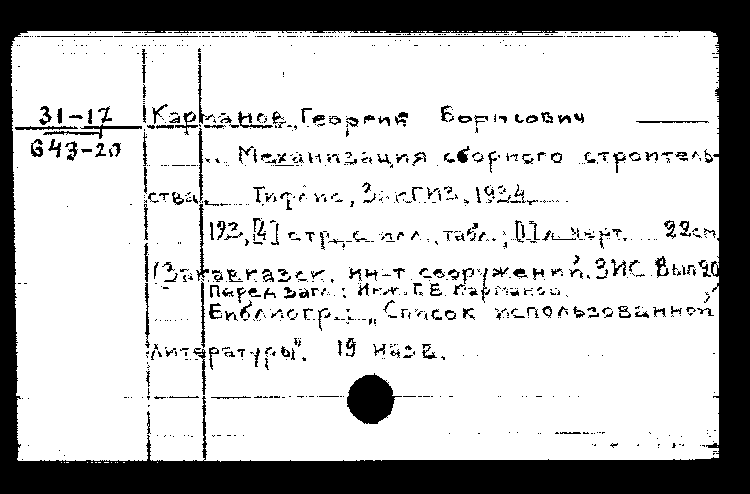 31-17
643-20
Карманов, Георгий Борисович
.. Механизация сборного строитель-
ства. Тифлис, ЗакГИЗ, 1934.
193, [4] стр., с илл., табл.; [1] л. черт. 22см.
(Закавказск. ин-т сооружений. ЗИС. Вып. 20
Перед загл.: Инж. Г.Б. Карманов.
Библиогр.: „Список использованной
литературы". 19 назв.